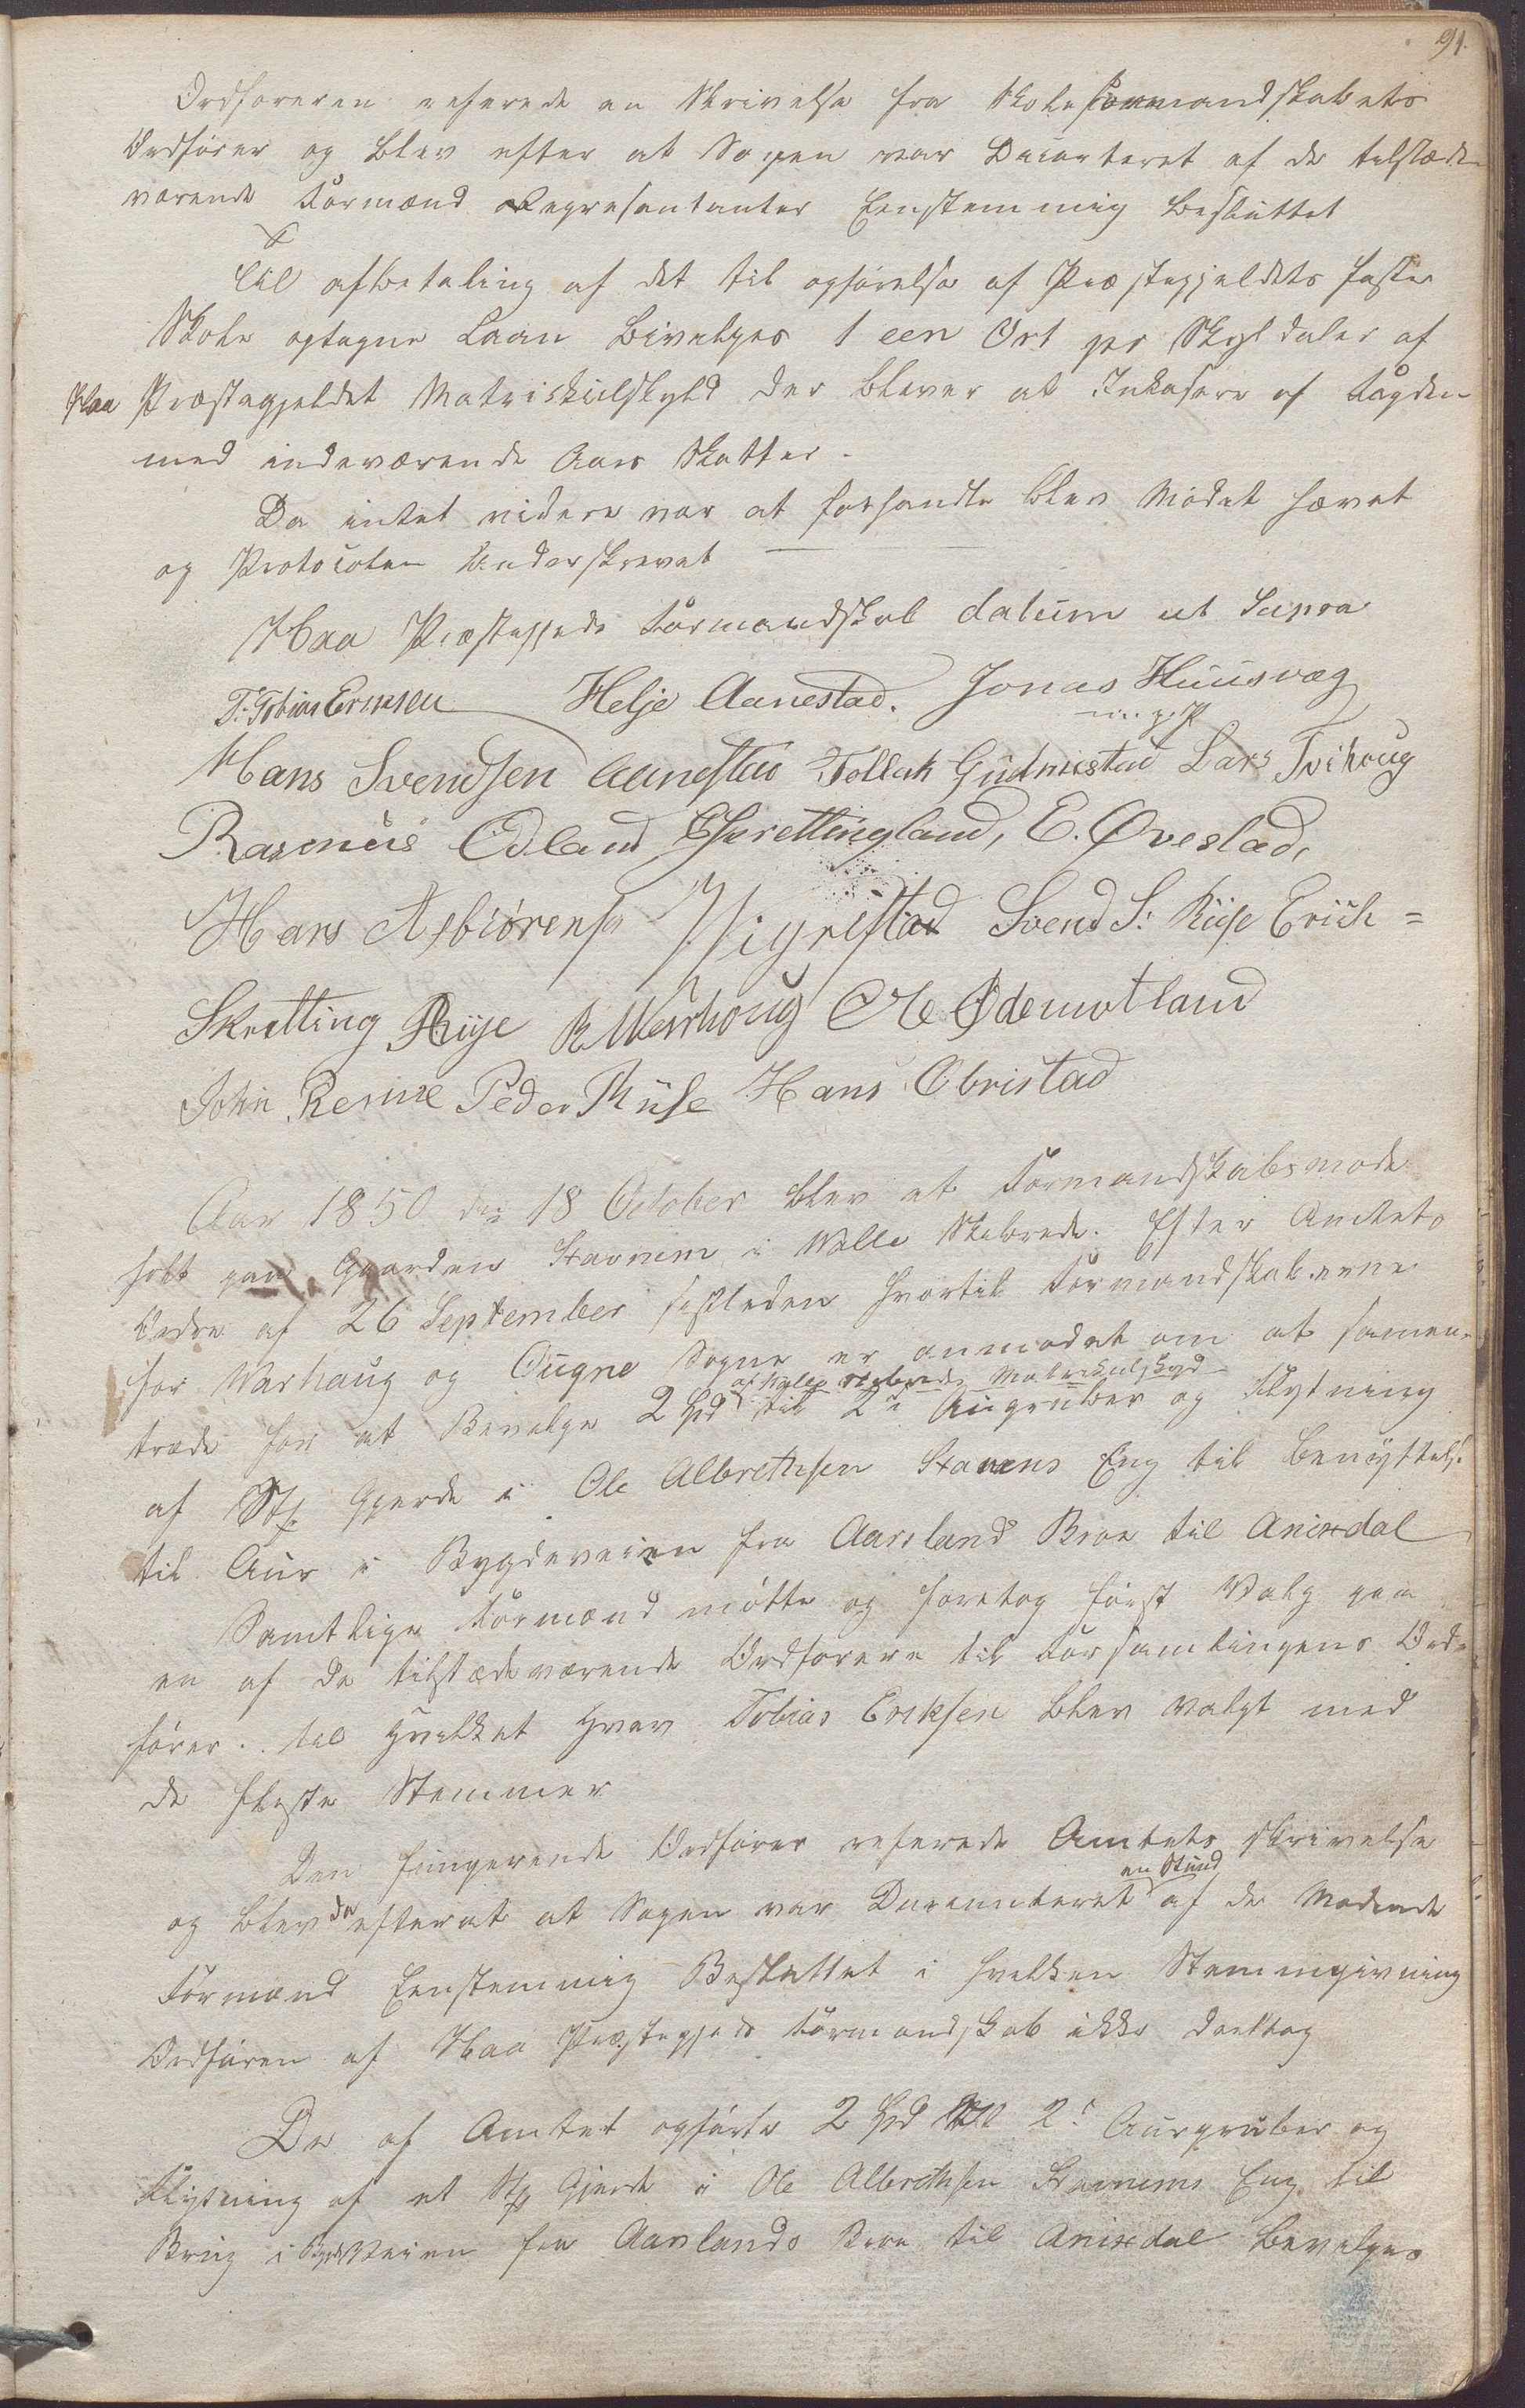 91.
Ordføreren refererede en Skrivelse fra Skoleformandskabets
Ordfører og blev efter at Sagen var Discuteret af de tilstæde
værende Formænd Repræsentanter Eenstemmig besluttet
Til afbetaling af det til opførelse af Præstegjeldets faste
Skole optagne Laan bevilges 1 een Ort pr Skyldaler af
Haa Præstegjeldet Matriskulskyld der bliver at Inkasere af Fogden
med indeværende Aars Skatter.
Da intet videre var at forhandle blev Mødet hævet
og Protocolen Underskrevet
Haa Præstegjelds Formandskab datum ut Supra
T. Tobias Eriksen Helje Aanestad. Jonas Huusvæg
m. p. P
Hans Svendsen Aanestad Tollak Gudmestad Lars Tvihoug
Rasmus Ødland E Skrettingland, E. Øvestad,
Hans Asbiørens Vigrestad Svend S. Riise Erich =
Skretting Riise R Warhoug Ole Ødemotland
John Reime Peder Riise Hans Obristad
Aar 1850 den 18 October blev et Formandskabsmøde
holt paa Gaarden Stavnem i Nælle Skibrede. Efter Amtets
Ordre af 26 September sistleden hvortil Formandskaberne
for Warhaug og Ougne Sogne er anmodet om at samen-
træde for at Bevilge 2 Spd til 2de Augruber og Flytning
af Nælle Skibredes Matrikulskyld
af Stk Gjerde i Ole Albrethsen Stavnems Eng til benyttelse
til Aur i Bygdeveien fra Aarsland Broe til Anisdal
Samtlige Formænd møtte og foretog først Valg paa
en af de tilstædeværende Ordførere til Forsamlingens Ord-
fører. til hvilket Hverv Tobias Eriksen blev valgt med
de fleste Stemmer
Den fungerende Ordfører referede Amtets skrivelse
en Stund
og blev da efterat at Sagen var Discuteret af de Mødende
Formænd Eenstemmig Besluttet i hvilken Stemmgivning
Ordføren af Haa Præstegjelds Formandskab ikke deeltog
De af Amtet opførte 2 Spd til 2de Aurgruber og
Flytning af et Stk Gjerde i Ole Albrethsen Stavnems Eng til
Brug i Bygdeveien fra Aarslands Broe til Anisdal bevilges